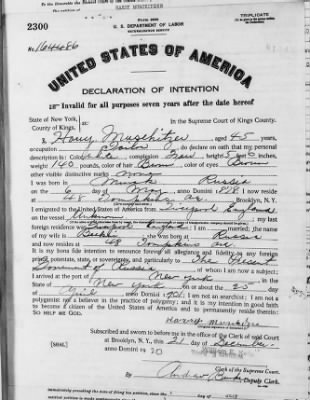 HARRY MUSCHITZER
TRIPLICATE
2300
U. S. DEPARTMENT OF LABOR
NATURALIZATION SERVICE
No. 164486
UNITED STATES OF AMERICA
DECLARATION OF INTENTION
Invalid for all purposes seven years after the date hereof
State of New York,
County of Kings.
In the Supreme Court of Kings County.
I, Harry aged 45 years,
occupation Tailor, do declare on oath that my personal
description is: Color white, complexion Fair, height 5 feet inches,
weight 140 pounds, color of hair Brown, color of eyes Brown
other visible distinctive marks None
I was born in Minsk Russia
on the 6 day of May, anno Domini 1; I now reside
at 48 Tompkins av.
I emigrated to the United States of America from Liverpool England
on the vessel Unknown; my last
foreign residence was Liverpool England; I am married; the name
of my wife is; she was born at Russia
and now resides at 48 Tompkins ave.
It is my bona fide intention to renounce forever all allegiance and fidelity to any foreign
prince, potentate, state, or sovereignty, and particularly to The Present
Government of Russia, of whom I am now a subject;
I arrived at the port of New York, in the
State of New York, on or about the 25 day
of April, anno Domini 1; I am not an anarchist; I am not a
polygamist nor a believer in the practice of polygamy; and it is my intention in good faith
to become a citizen of the United States of America and to permanently reside therein:
SO HELP ME GOD.
Subscribed and sworn to before me in the office of the Clerk of said Court
[SEAL.] at Brooklyn, N. Y., this 21 day of December
anno Domini 1920
Clerk of the Supreme Court.
By, Deputy Clerk.